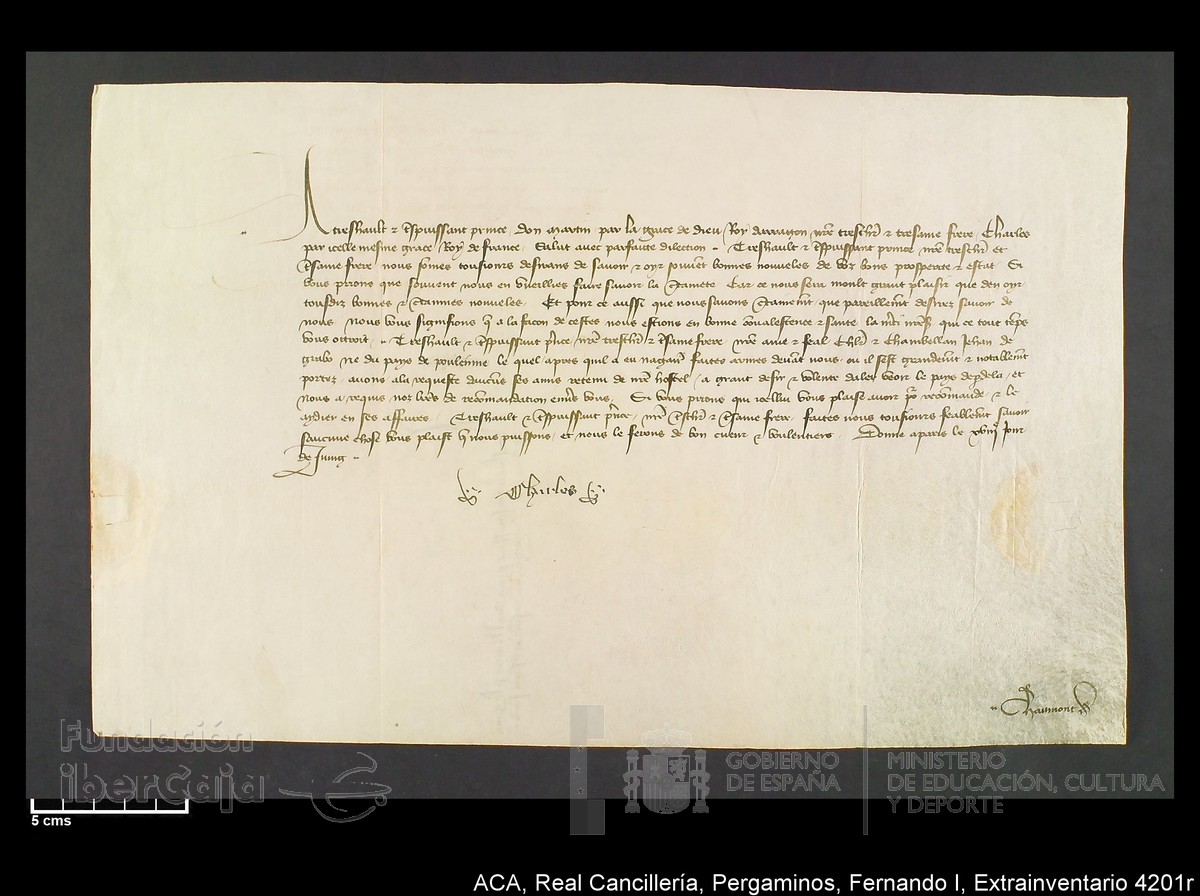 A treshault & trespuissant prince don martin par la grace de dieu Roy darragon nre treschr & tresame frere Charles
par icelle mesme grace Roy de france Salut avec parfaicte dilection Treshault & trespuissant prince nre treschr et
tresame frere nous sommes tousiours desirans de savoir & oyr souvent bonnes nouvelles de voz bons prosperite & estat Si
vous prions que souvent nous en vueillies faire savoir la Car ce nous sera moult grant plaisir que den oyr
tousdiz bonnes & nouvelles Et pour ce aussi que nous savons que pareillemt desirez savoir de
nous Nous vous signifions q a la facon de cestes nous estions en bonne & sante la mrci nres qui ce tout temps
vous ottroit Treshault & trespuissant prince nre treschr & tresame frere nre ame & feal Chlr & Chambellan Jehan de
ne du pays de le quel apres quil a eu faictes armes devant nous ou il sest grandemt & notablemt
portez avons ala requeste ses amis retenu de nre hostel a grant desir & volente daler veoir le pays dela et
nous a requis noz lres de recommandation envers vous Si vous prions que icellui vous plaise avoir pour recommande & le
aydier en ses affaires Treshault & trespuissant prince nre treschr & tresame frere faites nous tousiours feablemt savoir
saucune chose vous plaist q nous puissons et nous le ferons de bon cuer & voulentiers Donne a paris le xviije jour
de Juing
Charles
Chaumont
Fundación
iberCaja
GOBIERNO
DE ESPAÑA
MINISTERIO
DE EDUCACIÓN, CULTURA
Y DEPORTE
5 cms
ACA, Real Cancillería, Pergaminos, Fernando I, Extrainventario 4201r